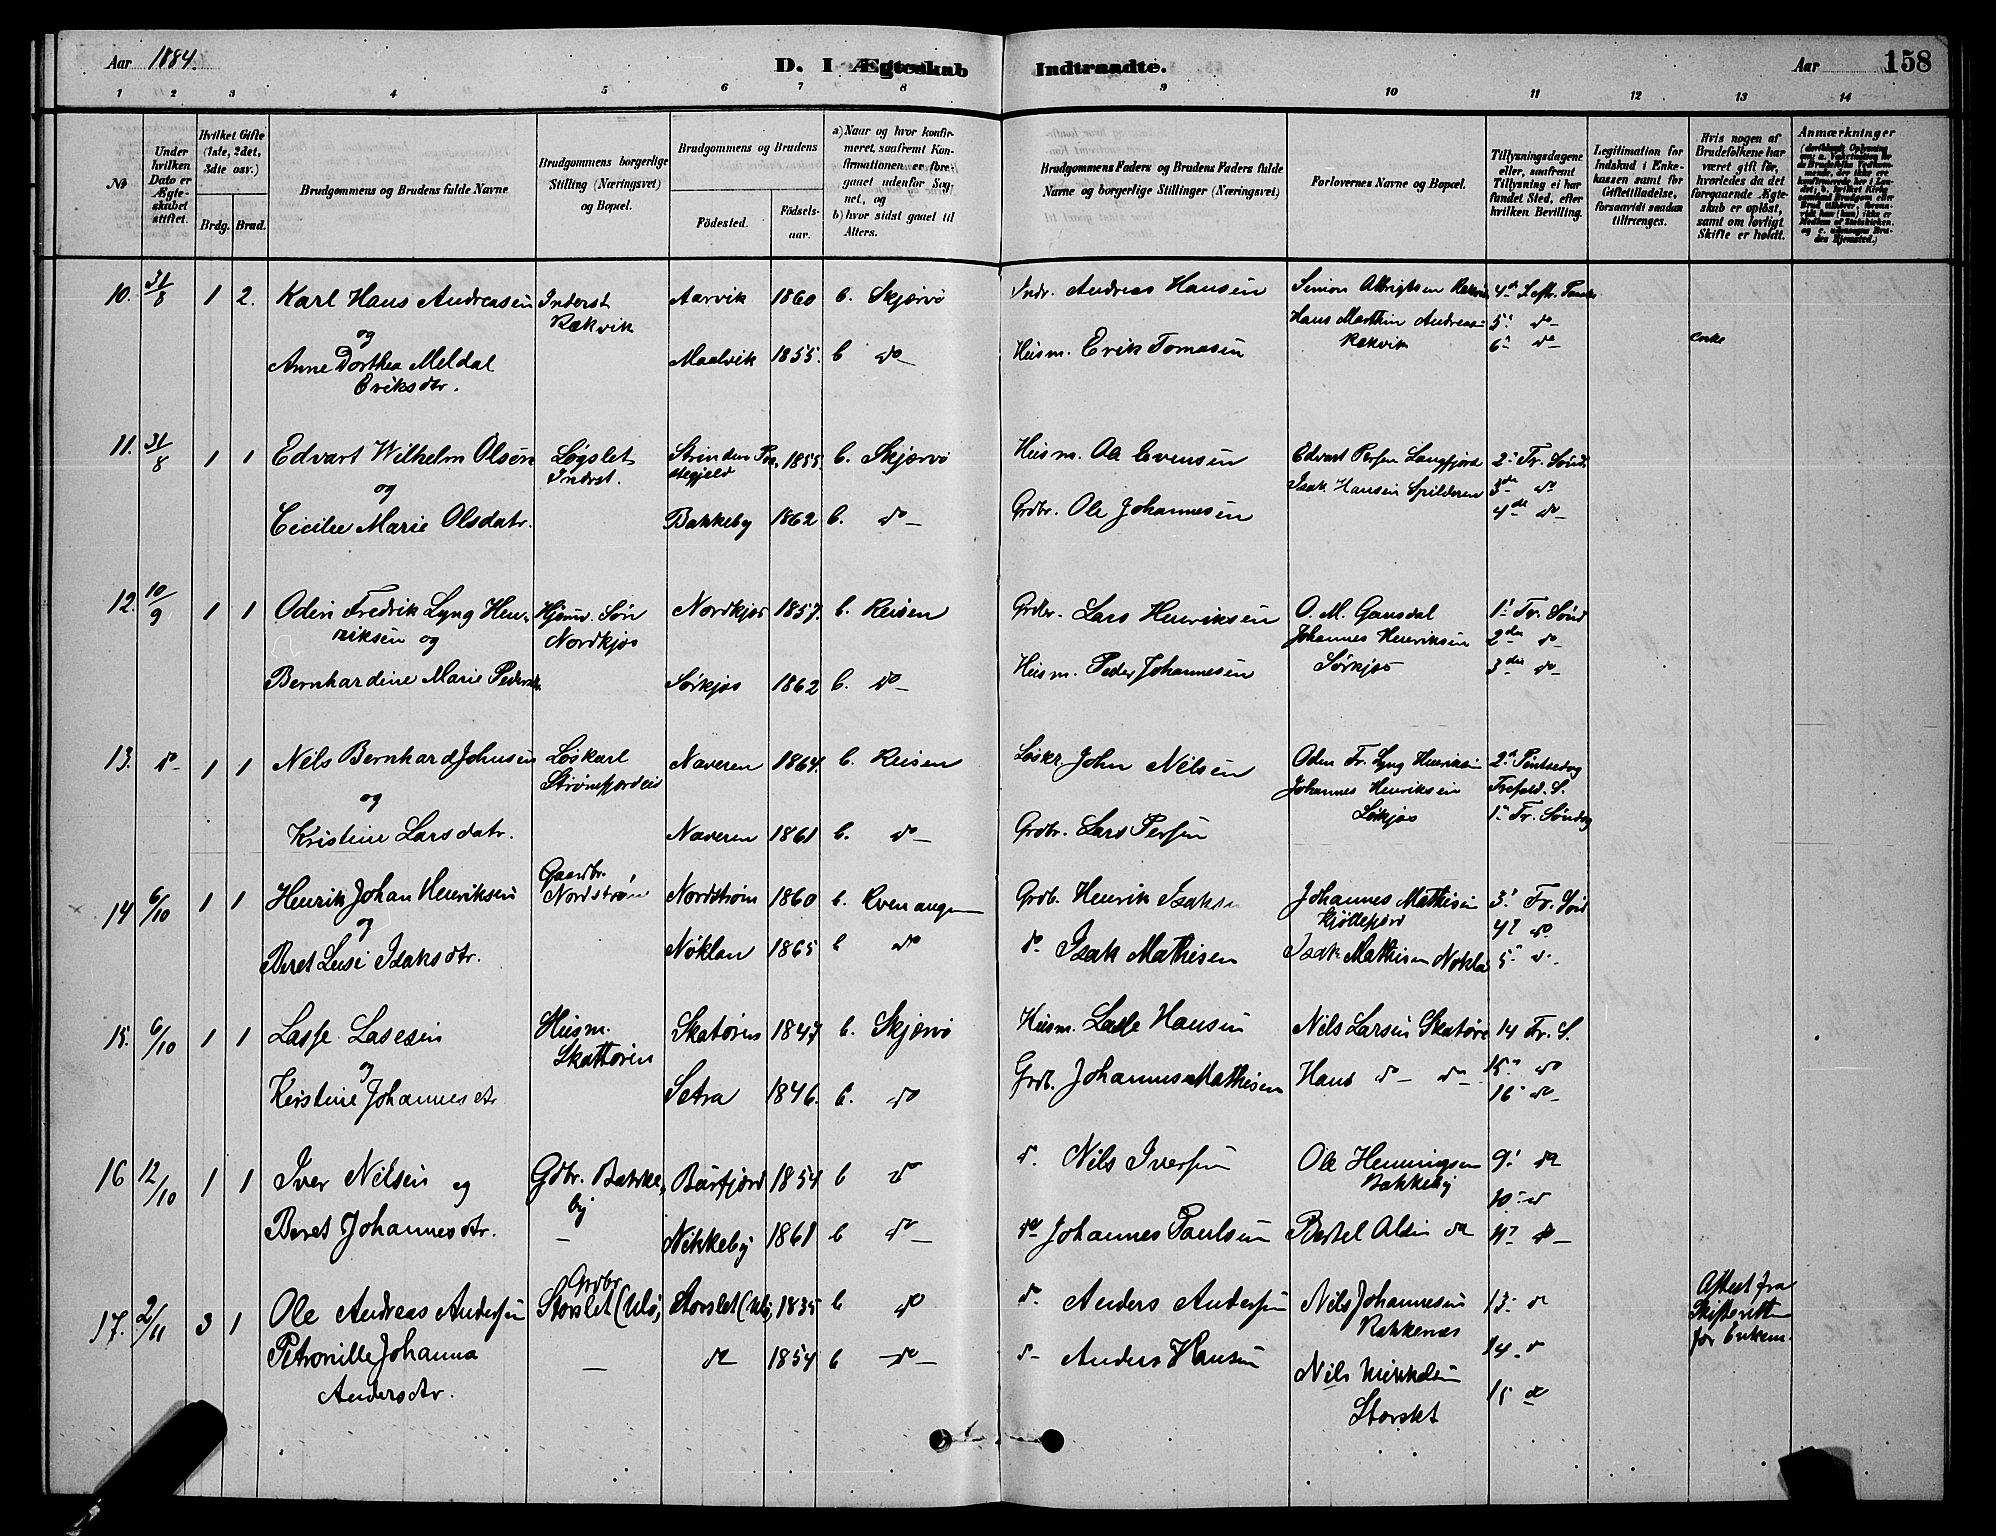 Aar 1884.
D. I Ægteskab Indtraadte.
Aar 158
1 2 3 4 5 6 7 8 9 10 11 12 13 14
№
Under hvilken Dato er Ægteskabet stiftet.
Hvilket Gifte (1ste, 2det, 3dte osv.)
Brdg. Brud.
Brudgommens og Brudens fulde Navne
Brudgommens borgerlige Stilling (Næringsvei) og Bopæl.
Brudgommens og Brudens
Födested.
Födselsaar.
a) Naar og hvor konfirmeret, saafremt Konfirmationen er foregaaet udenfor Sognet, og
b) hvor sidst gaaet til Alters.
Brudgommens Faders og Brudens Faders fulde Navne og borgerlige Stillinger (Næringsvei)
Forlovernes Navne og Bopæl.
Tillysningsdagene eller, saafremt Tillysning ei har fundet Sted, efter hvilken Bevilling.
Legitimation for Indskud i Enkekassen samt for Giftetilladelse, forsaavidt saadan tiltrænges.
Hvis nogen af Brudefolkene har været gift för, hvorledes da det foregaaende Ægteskab er oplöst, samt om lovligt Skifte er holdt.
Anmærkninger
10. 31/8 1 2. Karl Hans Andreasen Inderst Aarvik 1860 b. Skjærvö Indr. Andreas Hansen Simon Albrigtsen 4
Rækvik Hans Marthin Andreas 5 do
og Rækvik 6 do enke
Anne Dorthea Meldal Maalvik 1855. b do Husm. Erik Tomasen
Eriksdtr.
11. 31/8 1 1 Edvart Wilhelm Olsen Løgslet Strinden 1855. b. Skjærvö Husm. Ole Evensen Edvart Persen Langfjord 2 Fr. Sönd.
Inderst. Isak Hansen Spilderen 3de do
og 4de do
Cicilie Marie Olsdatr. Bakkeby 1862 b. do Grdbr. Ole Johannesen
12. 10/9 1 1 Odin Fredrik Lyng Henriksen og Søn Nordkjos Nordkjos 1857. b. Reisen Grdbr. Lars Henriksen O. M. Gansdal 1 Fr. Sönd
Johannes Henriksen 2den do
Bernhardine Marie Sørkjos 1862 b. do Husm. Peder Johannesen Sørkjos 3die do
13. do 1 1 Nils Bernhard Johnsen Løskarl Naveren 1864. b. Reisen Løskr. John Nilsen Oden Fr. Lyng Henriksen 2
Strømfjordeid Johannes Henriksen Trefold. S.
og Sörkjos 1 Fr. Söndag
Kristine Larsdatr. Naveren 1861 b. do Grdbr. Lars Persen
14 6/10 1 1 Henrik Johan Henriksen Gaardbr. Nordström Nordström 1860 b. Kvenangen Grdb. Henrik Isaksen Johannes Mathisen 3 Fr. Sönd
og Kjöllefjord 4 do
Beret Lusi Isaksdtr. Nöklan 1865 b do do Isak Mathisen Isak Mathisen Nökla 5 do
15. 6/10 1 1 Lasse Lasesen Husm. Skattören Skatören 1847 b. Skjærvö Husm. Lasse Hansen Nils Larsen Skatöre 14 Fr. S.
og 15 do
Kirstine Johannesdtr Setra 1846. b. do Grdb. Johannes Mathisen Hans do do 16 do
16 12/10 1 1 Iver Nilsen og Gdbr. Bakkeby Burfjord 1854 b do do Nils Iversen Ole Henningsen Bakkeby 9 do
10 do
Beret Johannesdtr. Nikkeby 1861 b do do Johannes Paulsen Bertel Olsen do 11 do
17. 2/11 3 1 Ole Andreas Andersen Grdbr Storslet Storslet 1835 b do do Anders Andersen Nils Johannesen Rakkenæs 13 do Attest fra Skifteretten for Enkem.
14 do
Petronille Johanna Andersdtr. do 1854 b do do Anders Hansen Nils 15 do
Storslet